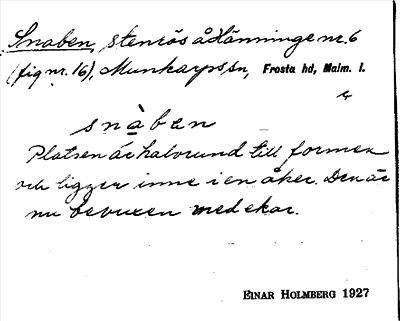 Snaben, stenrös å Hänninge nr. 6
(fig nr. 16), Munkarps sn, Frosta hd, Malm. l.
snàben
Platsen är halvrund till formen
och ligger inne i en åker. Den är
nu bevuxen med ekar.
EINAR HOLMBERG 1927